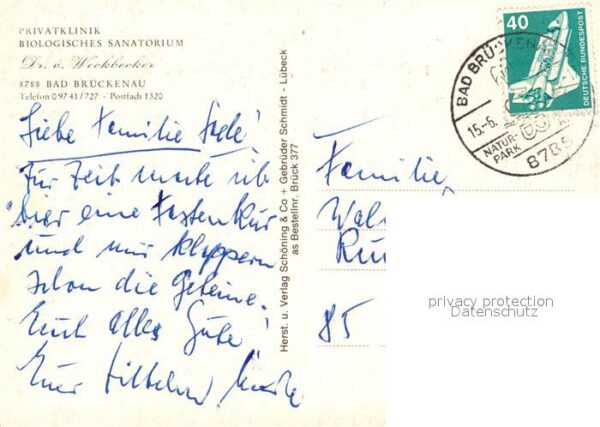 PRIVATKLINIK
BIOLOGISCHES SANATORIUM
Dr. v. Weckbecker
8788 BAD BRÜCKENAU
Telefon 09741/727 - Postfach 1320
Liebe Familie
Zur Zeit mache ich
hier eine Fastenkur
und mir klappern
schon die Gebeine.
Euch alles Gute!
Euer
Herst. u. Verlag Schöning & Co + Gebrüder Schmidt - Lübeck
as Bestellnr. Brück 377
40
DEUTSCHE BUNDESPOST
BAD BRÜCKENAU
15.-6.
NATUR-
PARK
Familie
85
privacy protection
Datenschutz